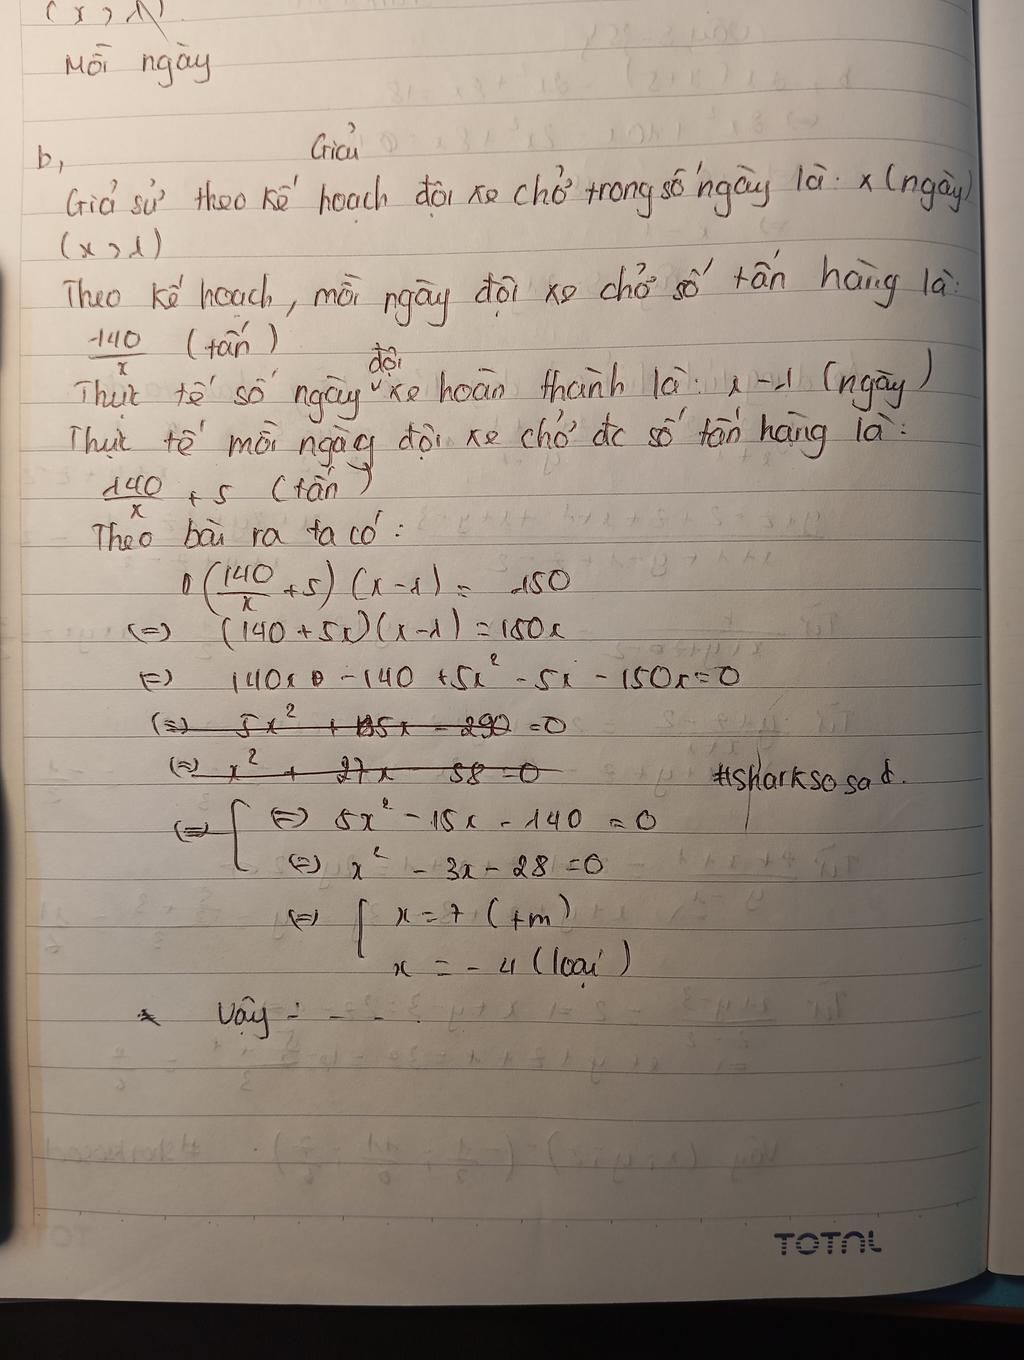 (x > 1)
Mỗi ngày
b,
Giải
Giả sử theo kế hoạch đội xe chở trong số ngày là: x (ngày)
(x > 1)
Theo kế hoạch, mỗi ngày đội xe chở số tấn hàng là:
140/x (tấn)
Thực tế số ngày đội xe hoàn thành là: x - 1 (ngày)
Thực tế mỗi ngày đội xe chở đc số tấn hàng là:
140/x + 5 (tấn)
Theo bài ra ta có:
(140/x + 5)(x - 1) = 150
(=) (140 + 5x)(x - 1) = 150x
(=) 140x - 140 + 5x² - 5x - 150x = 0
(=) 5x² + 135x - 290 = 0
(=) x² + 27x - 58 = 0
#sharksosad.
(=) [ (=) 5x² - 15x - 140 = 0
(=) x² - 3x - 28 = 0
(=) [ x = 7 (tm)
x = - 4 (loại)
Vậy - - - .
TOTAL